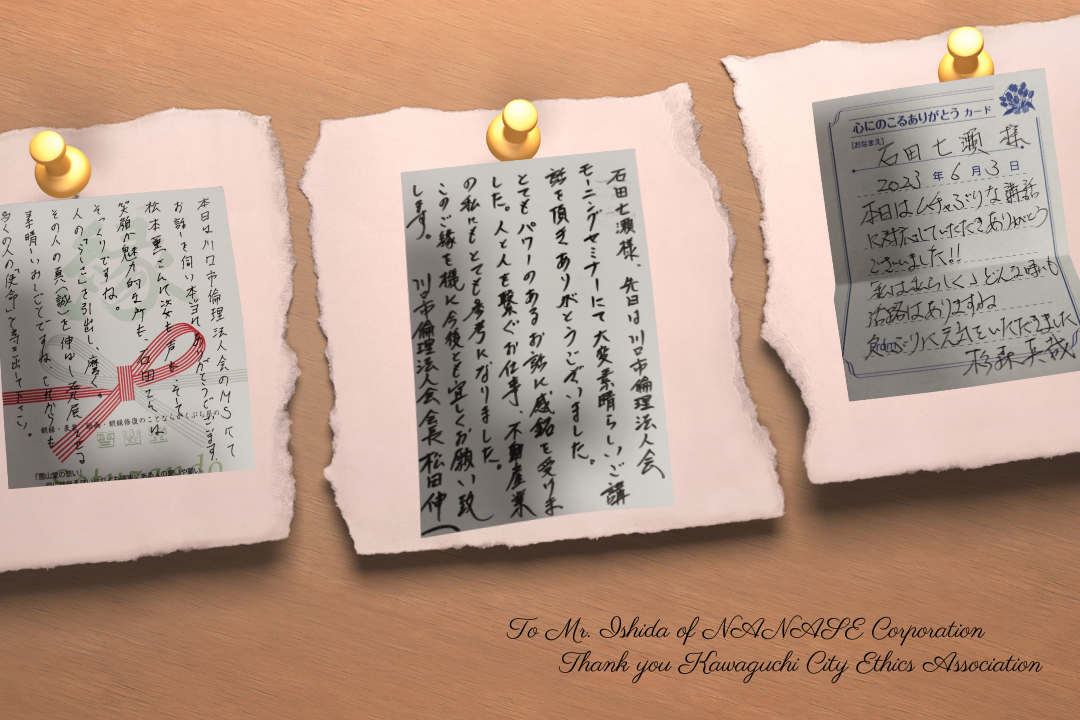 本日は川口市倫理法人会のMSにて
お話しを伺い本当にありがとうございます。
松本薫さんに姿も声も、そして
笑顔が魅力的な所も、石田さんは
そっくりですね。
人の「らしさ」を引出し、磨く。
その人の真(誠)を伸ばし発展させる
素晴しいおしごとですね。これからも
多くの人の「使命」を導き出して下さい。
額縁・表装・絵画・額縁修復のことなら
石田七瀬様、先日は川口市倫理法人会
モーニングセミナーにて大変素晴らしいご講
話を頂きありがとうございました。
とてもパワーのあるお話に感銘を受けま
した。人と人を繋ぐお仕事、不動産業
の私にもとても参考になりました。
このご縁を機に今後とも宜しくお願い致
します。
川口市倫理法人会会長 松田伸
心にのこるありがとうカード
[おなまえ]
石田七瀬 様
2023 年 6 月 3 日
本日はムチャぶりな講話
に対応していただきありがとう
ございました!!
「私は私らしく」どんな時も
活路はありますね
久しぶりに元気をいただきました
杉森真哉
To Mr. Ishida of NANASE Corporation
Thank you Kawaguchi City Ethics Association